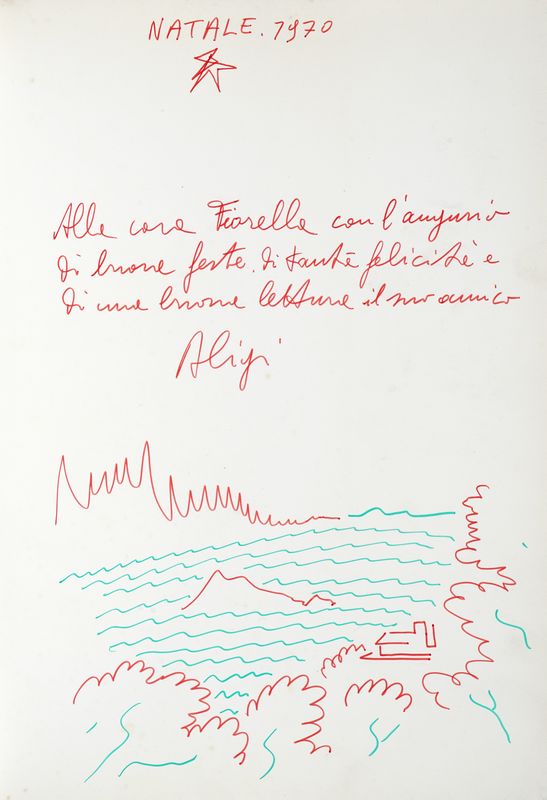 NATALE. 1970
Alla cara Fiorella con l'augurio
di buone feste. di tanta felicità e
di una buona lettura il suo amico
Aligi